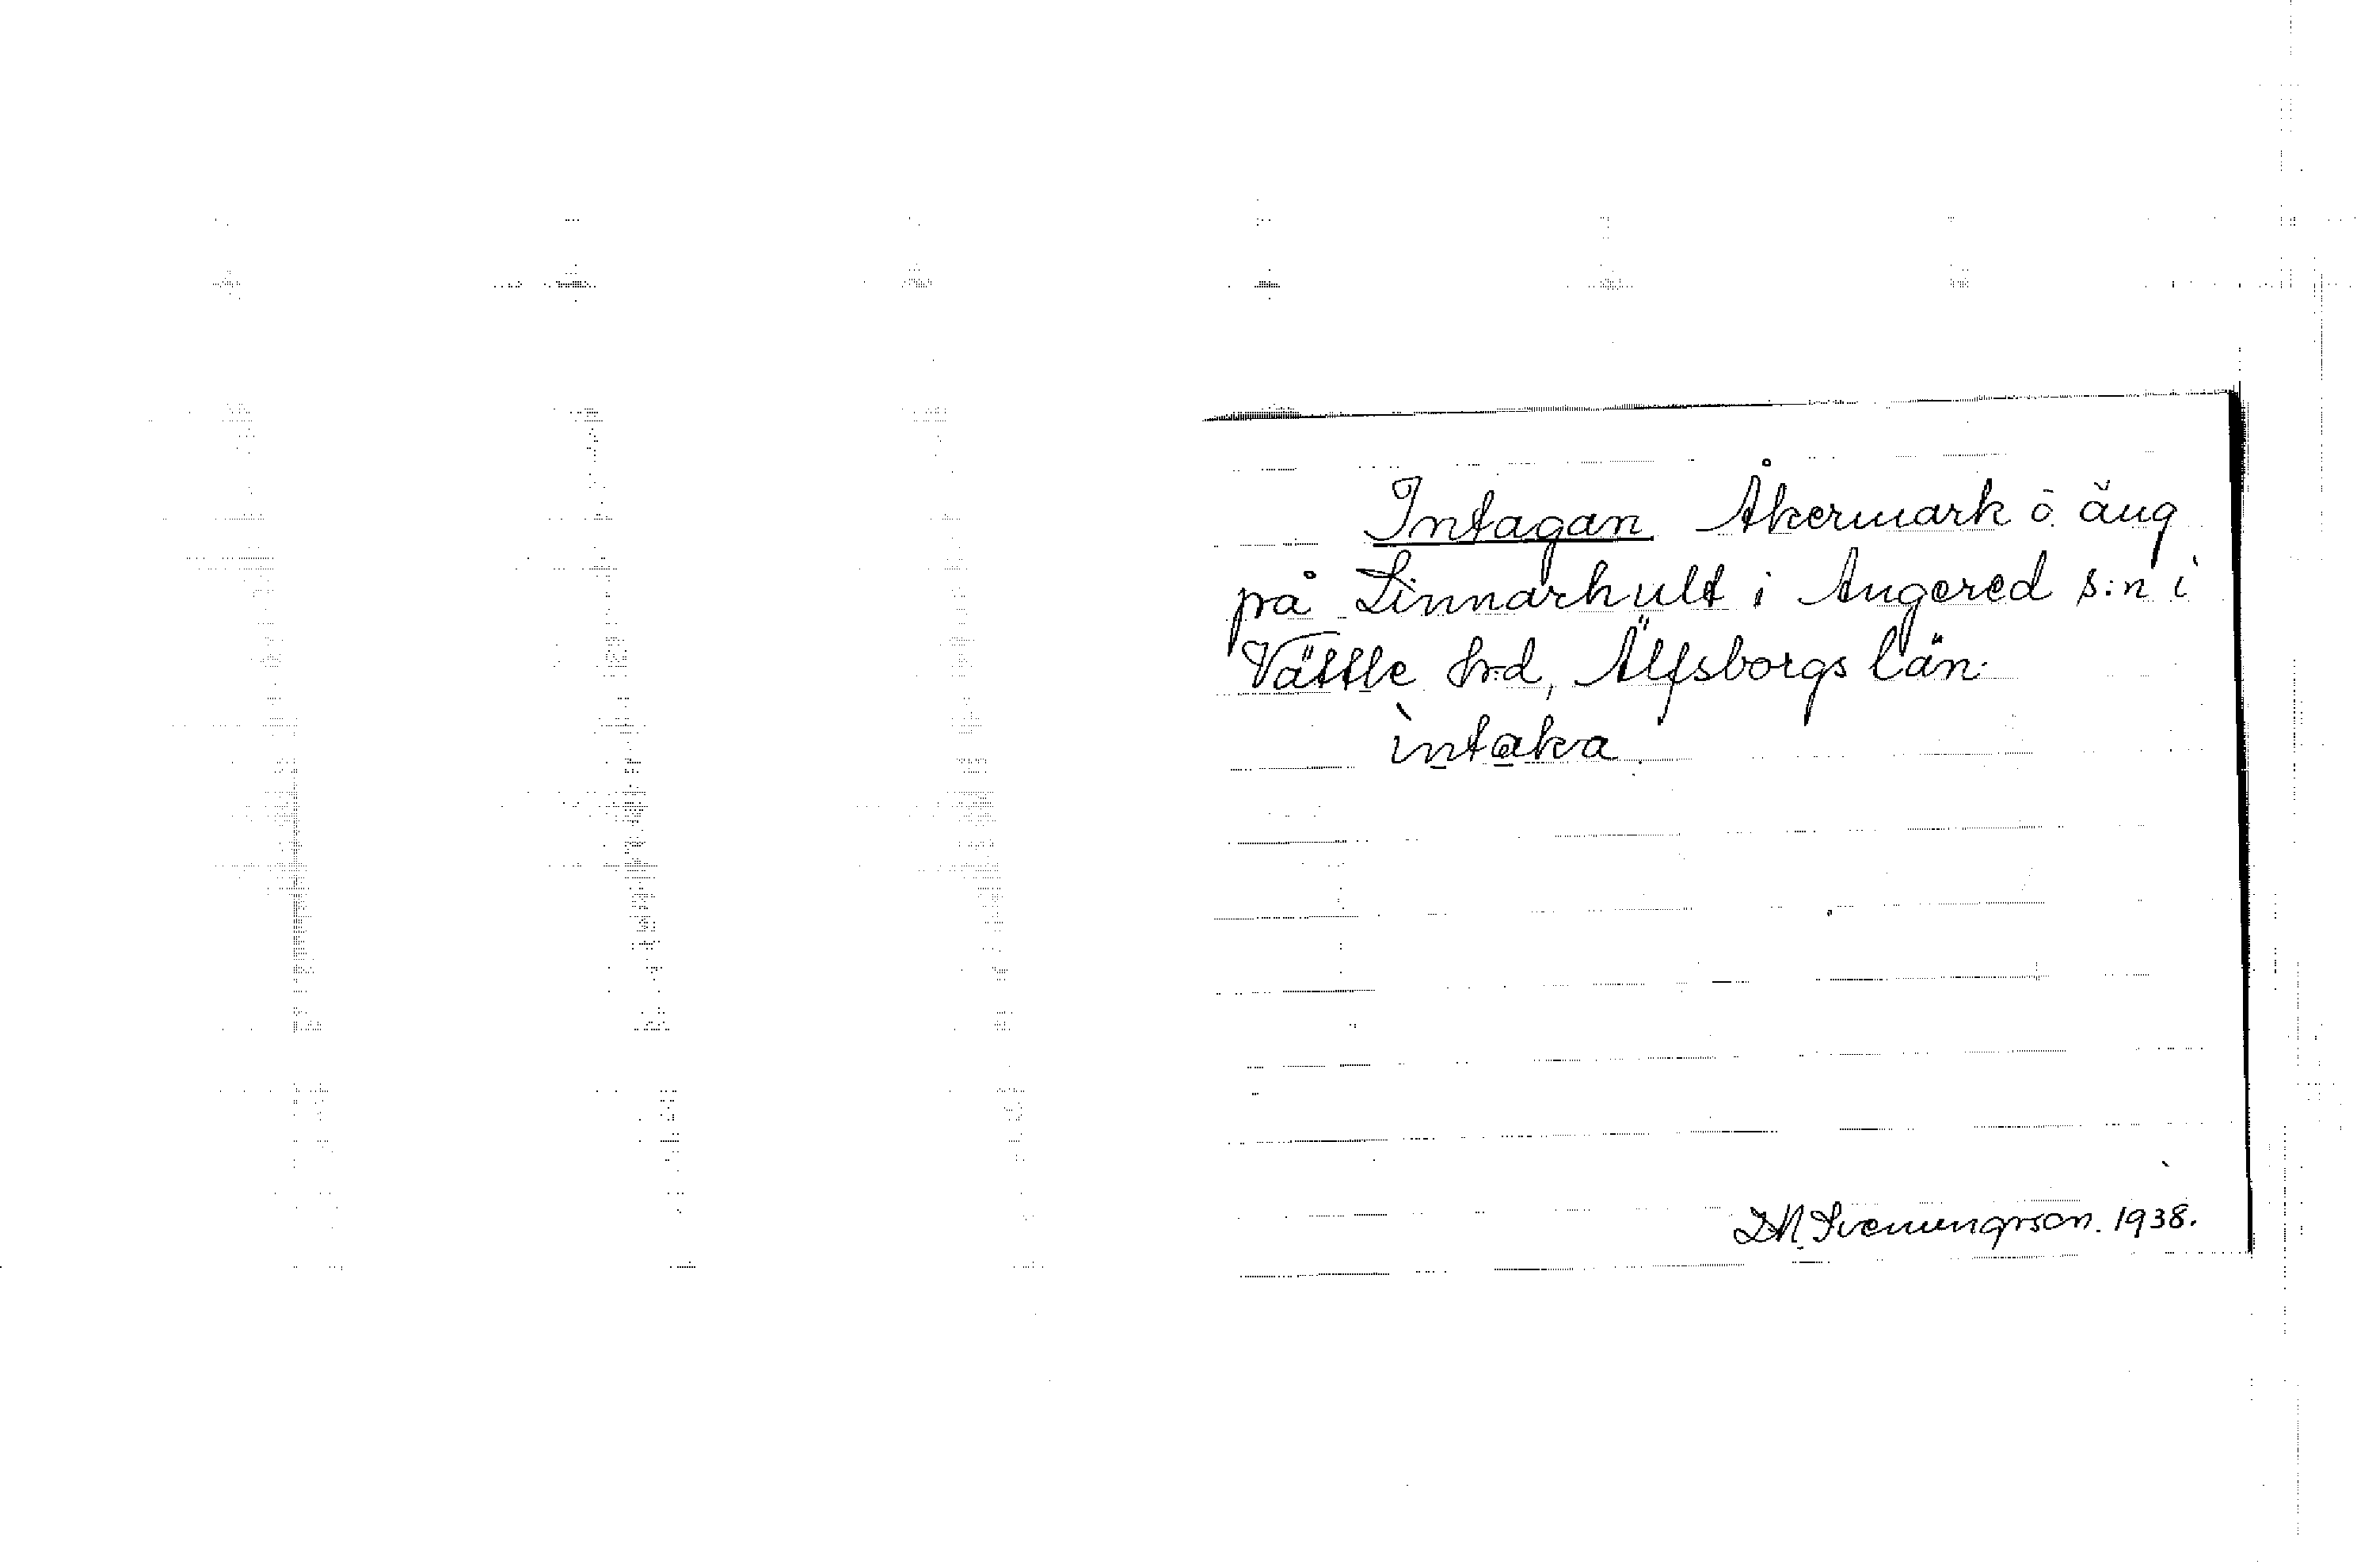 Intagan Åkermark o. äng
på Linnarhult i Angered s:n i
Vättle hd, Älfsborgs län.
ìntaka
Svenungsson. 1938.